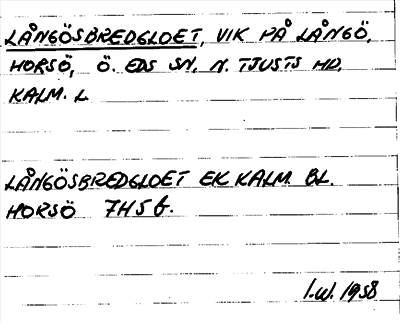 LÅNGÖSBREDGLOET, VIK PÅ LÅNGÖ,
HORSÖ, Ö. EDS SN, N. TJUSTS HD,
KALM. L
LÅNGÖSBREDGLOET EK KALM. BL.
HORSÖ 7H5f.
I.W. 1958